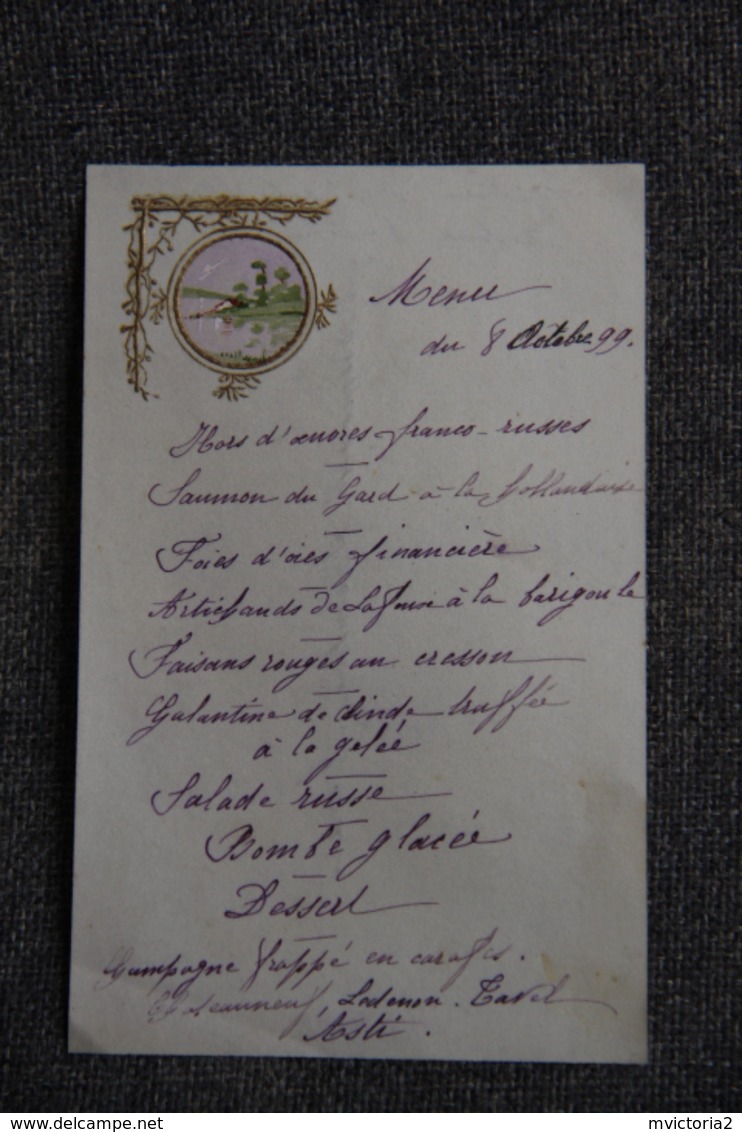 Menu
du 8 Octobre 99.
Hors d'œuvres franco-russes
Saumon du Gard à la hollandaise
Foies d'oies financière
Artichauds de à la barigoule
Faisans rouges au cresson
Galantine de dinde truffée
à la gelée
Salade russe
Bombe glacée
Dessert
frappé en carafes.
Chateauneuf, Ledenon. Tavel
Asti.
delcampe.net
mvictoria2